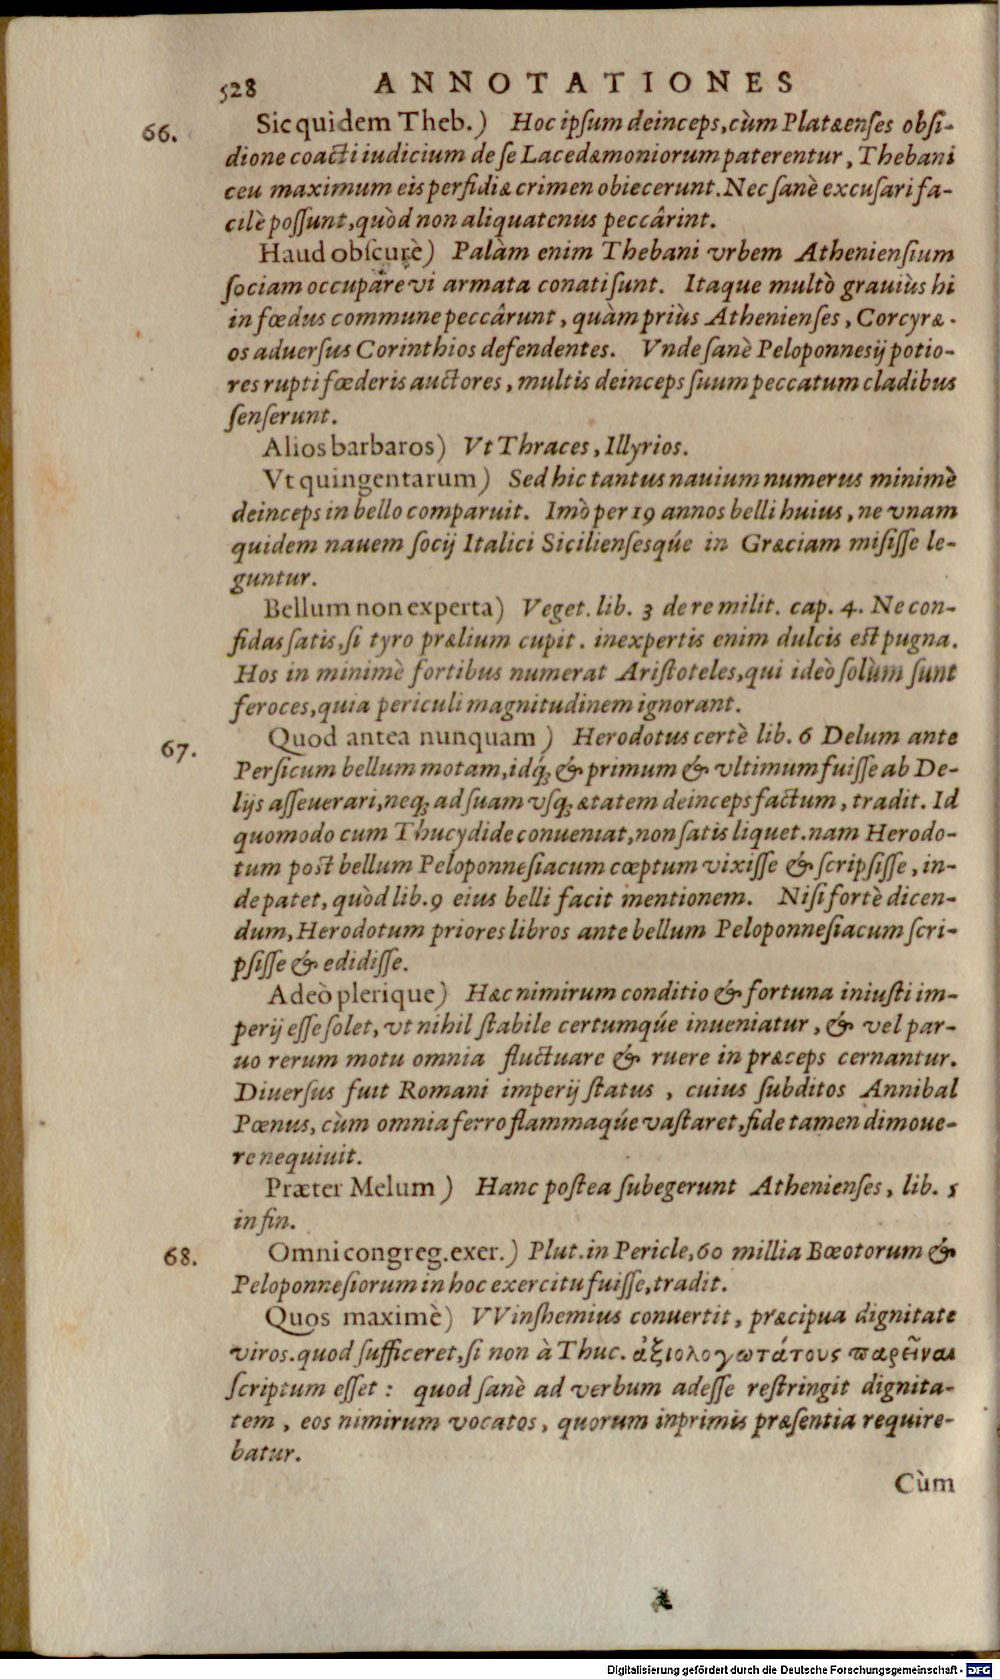 528 ANNOTATIONES
66. Sic quidem Theb.) Hoc ipſum deinceps, cùm Platæenſes obſi-
dione coacti iudicium de ſe Lacedæmoniorum paterentur, Thebani
ceu maximum eis perfidiæ crimen obiecerunt. Nec ſanè excuſari fa-
cilè poſſunt, quòd non aliquatenus peccârint.
Haud obſcurè) Palàm enim Thebani vrbem Athenienſium
ſociam occupare vi armata conati ſunt. Itaque multò grauiùs hi
in fœdus commune peccârunt, quàm priùs Athenienſes, Corcyræ-
os aduerſus Corinthios defendentes. Vnde ſanè Peloponneſij potio-
res rupti fœderis auctores, multis deinceps ſuum peccatum cladibus
ſenſerunt.
Alios barbaros) Vt Thraces, Illyrios.
Vt quingentarum) Sed hic tantus nauium numerus minimè
deinceps in bello comparuit. Imò per 19 annos belli huius, ne vnam
quidem nauem ſocij Italici Sicilienſesqúe in Græciam miſiſſe le-
guntur.
Bellum non experta) Veget. lib. 3 de re milit. cap. 4. Ne con-
fidas ſatis, ſi tyro prælium cupit. inexpertis enim dulcis eſt pugna.
Hos in minimè fortibus numerat Ariſtoteles, qui ideò ſolùm ſunt
feroces, quia periculi magnitudinem ignorant.
67. Quod antea nunquam) Herodotus certè lib. 6 Delum ante
Perſicum bellum motam, idq́ꝫ & primum & vltimum fuiſſe ab De-
lijs aſſeuerari, neqꝫ ad ſuam vſqꝫ ætatem deinceps factum, tradit. Id
quomodo cum Thucydide conueniat, non ſatis liquet. nam Herodo-
tum poſt bellum Peloponneſiacum cœptum vixiſſe & ſcripſiſſe, in-
de patet, quòd lib. 9 eius belli facit mentionem. Niſi fortè dicen-
dum, Herodotum priores libros ante bellum Peloponneſiacum ſcri-
pſiſſe & edidiſſe.
Adeò plerique) Hæc nimirum conditio & fortuna iniuſti im-
perij eſſe ſolet, vt nihil ſtabile certumqúe inueniatur, & vel par-
uo rerum motu omnia fluctuare & ruere in præceps cernantur.
Diuerſus fuit Romani imperij ſtatus, cuius ſubditos Annibal
Pœnus, cùm omnia ferro flammaqúe vaſtaret, fide tamen dimoue-
re nequiuit.
Præter Melum) Hanc poſtea ſubegerunt Athenienſes, lib. 5
in fin.
68. Omni congreg. exer.) Plut. in Pericle, 60 millia Bœotorum &
Peloponneſiorum in hoc exercitu fuiſſe, tradit.
Quos maximè) VVinſhemius conuertit, præcipua dignitate
viros. quod ſufficeret, ſi non à Thuc. ἀξιολογωτάτους παρεῖναι
ſcriptum eſſet: quod ſanè ad verbum adeſſe reſtringit dignita-
tem, eos nimirum vocatos, quorum inprimis præſentia require-
batur.
Cùm
Digitalisierung gefördert durch die Deutsche Forschungsgemeinschaft - DFG